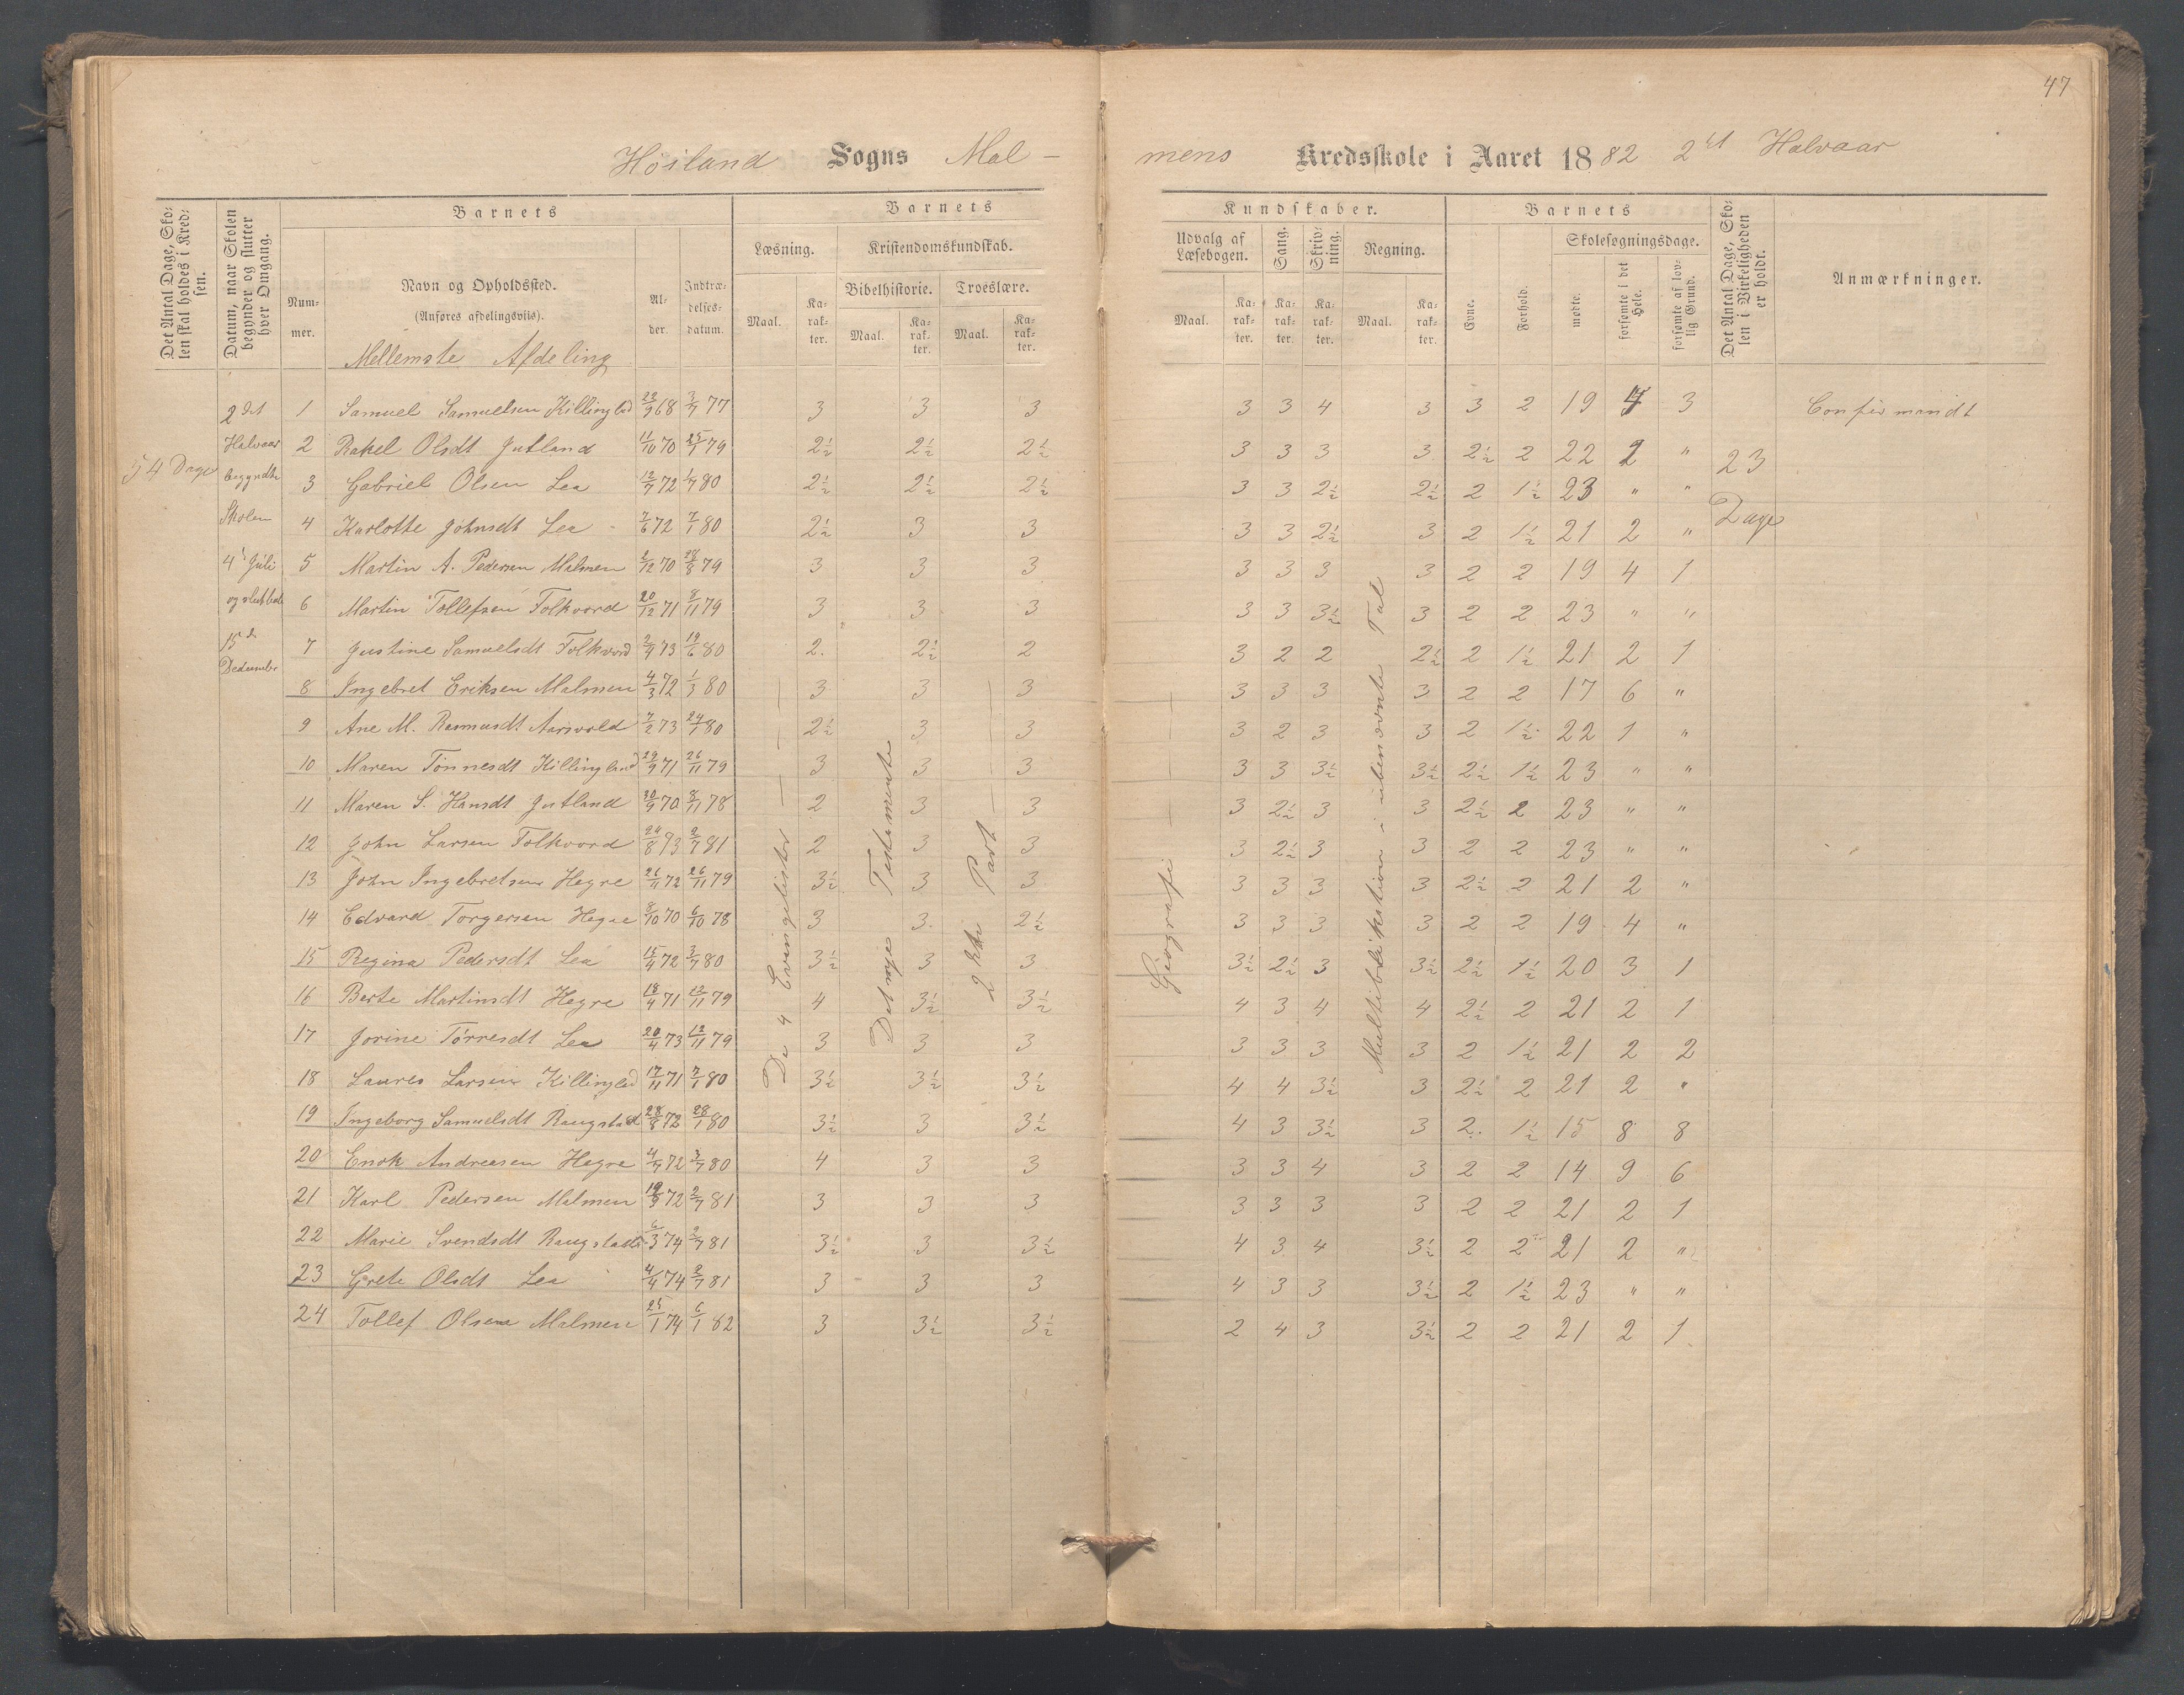 47
Höiland Sogns Mal- mens Kredsskole i Aaret 1882 2det Halvaar
Det Antal Dage, Skolen skal holdes i Kredsen.
Datum, naar Skolen begynder og slutter hver Omgang.
Barnets
Nummer.
Navn og Opholdssted.
(Anføres afdelingsviis).
Alder.
Indtrædelsesdatum.
Barnets
Læsning.
Maal.
Karakter.
Kristendomskundskab.
Bibelhistorie.
Maal.
Karakter.
Troeslære.
Maal.
Karakter.
Kundskaber.
Udvalg af Læsebogen.
Maal.
Karakter.
Sang.
Karakter.
Skrivning.
Karakter.
Regning.
Maal.
Karakter.
Barnets
Evne.
Forhold.
Skolesøgningsdage.
mødte.
forsømte i det Hele.
forsømte af lovlig Grund.
Det Antal Dage, Skolen i Virkeligheden er holdt.
Anmærkninger.
Mellemste Afdeling
54 Dage
2det
Halvaar
begyndte
Skolen
4de Juli
og sluttede
15de
Dedember
De 4 Evangelister
Det nye Testamente
2den Part
Geografi
Multiblikation i ubenævnte Tal
23
Dage
1 Samuel Samuelsen Killinglad 29/9 68 3/7 77 3 3 3 3 3 4 3 3 2 19 4 3 Confirmandt
2 Rakel Olsdt Jutland 11/10 70 25/1 79 2½ 2½ 2½ 3 3 3 3 2½ 2 22 1 "
3 Gabriel Olsen Lea 12/7 72 1/7 80 2½ 2½ 2½ 3 3 2½ 2½ 2 1½ 23 " "
4 Karlotte Johnsdt Lea 7/6 72 7/1 80 2½ 3 3 3 3 2½ 3 2 1½ 21 2 "
5 Martin A. Pedersen Malmen 2/12 70 28/8 79 3 3 3 3 3 3 3 2 2 19 4 1
6 Martin Tollefsen Folkvord 20/12 71 8/11 79 3 3 3 3 3 3½ 3 2 2 23 " "
7 Justine Samuelsdt Folkvord 2/9 73 19/6 80 2. 2½ 2 3 2 2 2½ 2 1½ 21 2 1
8 Ingebret Eriksen Malmen 4/3 72 1/3 80 3 3 3 3 3 3 3 2 2 17 6 "
9 Ane M. Rasmusdt Aarsvold 7/2 73 24/7 80 2½ 3 3 3 2 3 3 2 1½ 22 1 "
10 Maren Tönnesdt Killingland 29/9 71 26/11 79 3 3 3 3 3 3½ 3½ 2½ 1½ 23 " "
11 Maren S. Hansdt Jutland 30/9 70 8/11 78 2 3 3 3 2½ 3 3 2½ 2 23 " "
12 John Larsen Folkvord 24/8 93 2/7 81 2 3 3 3 2½ 3 3 2 2 23 " "
13 John Ingebretsen Hegre 26/11 72 26/11 79 3½ 3 3 3 3 3 3 2½ 2 21 2 "
14 Edvard Torgersen Hegre 8/10 70 6/10 78 3 3 2½ 3 3 3 3 2 2 19 4 "
15 Regina Pedersdt Lea 15/4 72 3/7 80 3½ 3 3 3½ 2½ 3 3½ 2½ 1½ 20 3 1
16 Berte Martinsdt Hegre 18/4 71 12/11 79 4 3½ 3½ 4 3 4 4 2½ 2 21 2 1
17 Jorine Törresdt Lea 20/4 73 12/11 79 3 3 3 3 3 3 3 2 1½ 21 2 2
18 Laures Larsen Killinglad 17/11 71 7/1 80 3½ 3½ 3½ 4 4 3½ 3 2½ 2 21 2 "
19 Ingeborg Samuelsdt Raugstad 28/8 72 28/1 80 3½ 3 3½ 4 3 3½ 3 2. 1½ 15 8 8
20 Enok Andreesen Hegre 4/7 72 3/7 80 4 3 3 3 3 4 3 2 2 14 9 6
21 Karl Pedersen Malmen 19/9 72 2/7 81 3 3 3 3 3 3 3 2 2 21 2 1
22 Marie Svendsdt Raugstad 6/3 74 2/7 81 3½ 3 3½ 4 3 4 3½ 2 2 21 2 "
23 Grete Olsdt Lea 4/4 74 2/7 81 3 3 3 4 3 3 3½ 2 1½ 23 " "
24 Tollef Olsen Malmen 25/1 74 6/1 82 3 3½ 3½ 2 4 3 3½ 2 2 21 2 1